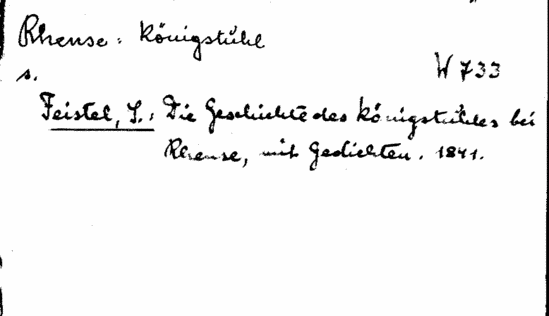 Rhense: Königstuhl
s. W 733
Feistel, L.: Die Geschichte des Königstuhles bei
Rhense, mit Gedichten. 1841.